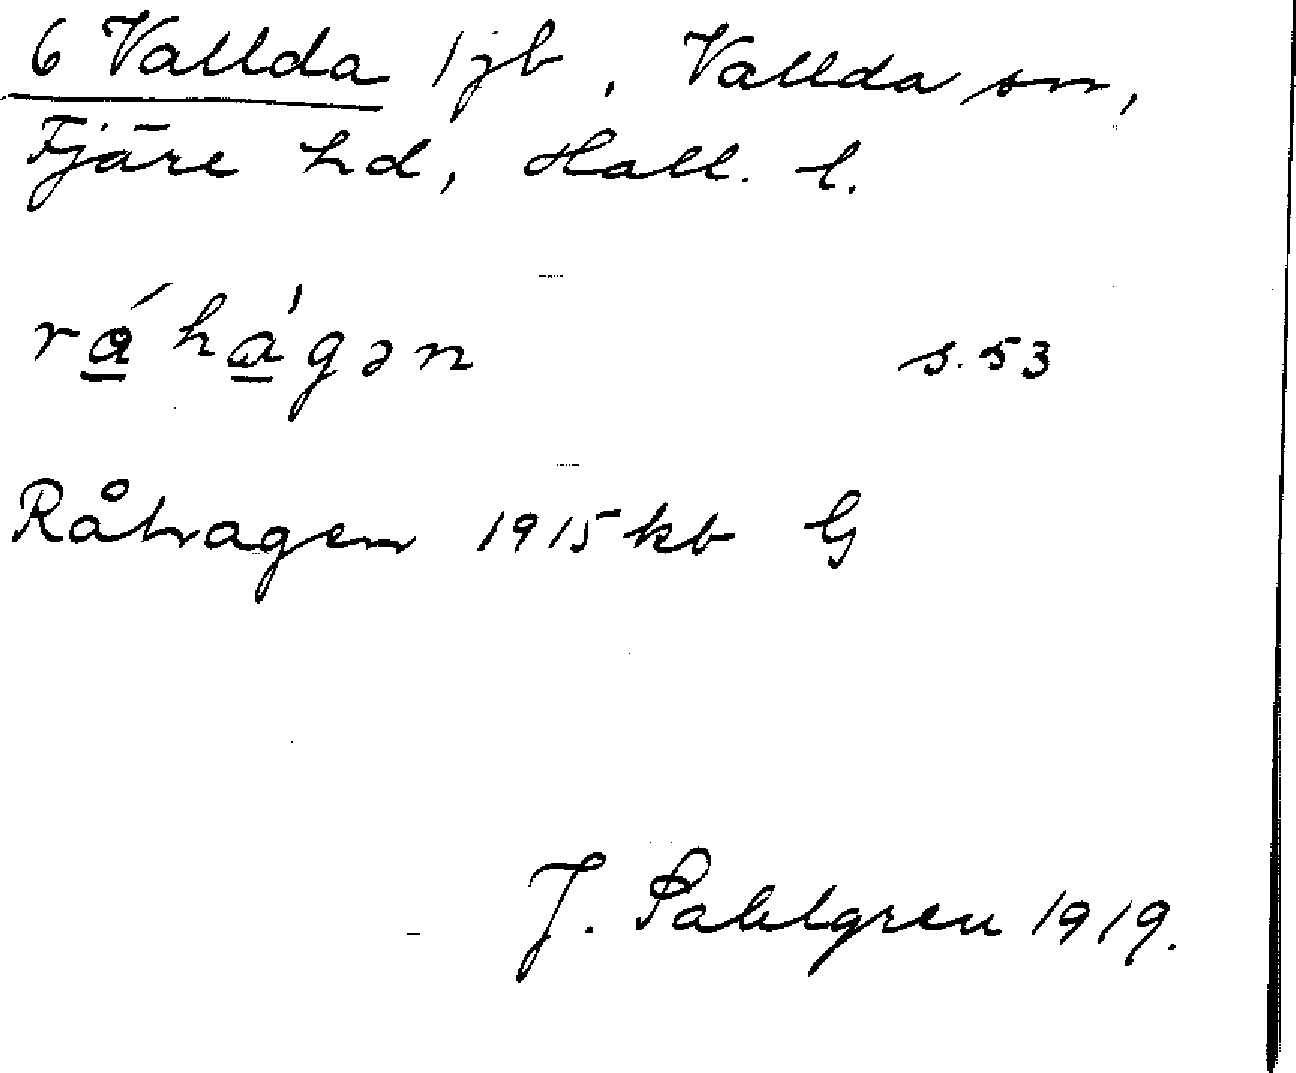 6 Vallda 1 jb, Vallda sn,
Fjäre hd, Hall. l.
rǻhà̱gən s. 53
Råhagen 1915 kb G
J. Sahlgren 1919.